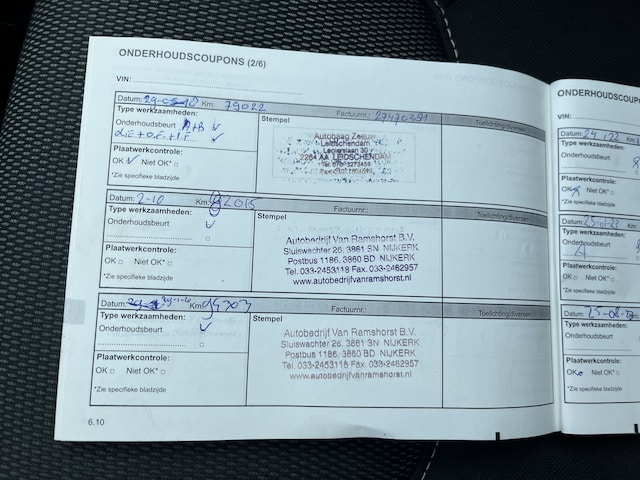 ONDERHOUDSCOUPONS (2/6)
VIN:
Datum: Km: 79022 Factuurnr.: Toelichting/diversen:
Type werkzaamheden:
Onderhoudsbeurt A+B ✓
✓
Plaatwerkcontrole:
OK ✓ Niet OK* □
*Zie specifieke bladzijde
Stempel
Autobaag Zeeuw
Leidschendam
2264 AA LEIDSCHENDAM
Datum: 2-10 Km: Factuurnr.: Toelichting/diversen:
Type werkzaamheden:
Onderhoudsbeurt ✓
□
Plaatwerkcontrole:
OK □ Niet OK* □
*Zie specifieke bladzijde
Stempel
Autobedrijf Van Ramshorst B.V.
Sluiswachter 26, 3861 SN NIJKERK
Postbus 1186, 3860 BD NIJKERK
Tel. 033-2453118 Fax. 033-2462957
www.autobedrijfvanramshorst.nl
Datum: Km: Factuurnr.: Toelichting/diversen:
Type werkzaamheden:
Onderhoudsbeurt ✓
□
Plaatwerkcontrole:
OK □ Niet OK* □
*Zie specifieke bladzijde
Stempel
Autobedrijf Van Ramshorst B.V.
Sluiswachter 26, 3861 SN NIJKERK
Postbus 1186, 3860 BD NIJKERK
Tel. 033-2453118 Fax. 033-2462957
www.autobedrijfvanramshorst.nl
6.10
ONDERHOUDSCOUPO
VIN:
Datum:
Type werkzaamheden:
Onderhoudsbeurt
Plaatwerkcontrole:
OK Niet OK* □
*Zie specifieke bladzijde
Datum:
Type werkzaamheden:
Onderhoudsbeurt
Plaatwerkcontrole:
OK □ Niet OK* □
*Zie specifieke bladzijde
Datum:
Type werkzaamheden:
Onderhoudsbeurt
Plaatwerkcontrole:
OK Niet OK* □
*Zie specifieke bladzijde